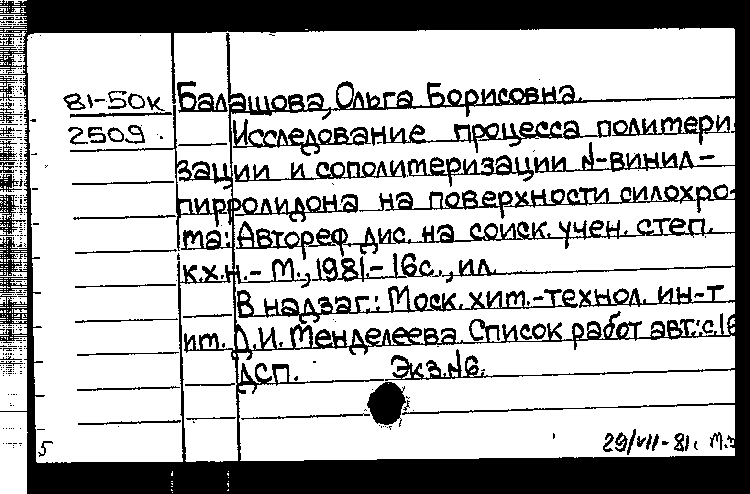 81-50к Балашова, Ольга Борисовна.
2509. Исследование процесса полимери
зации и сополимеризации N-винил-
пирролидона на поверхности силохро-
ма: Автореф. дис. на соиск. учен. степ.
к.х.н. - М., 1981. - 16с., ил.
В надзаг.: Моск. хим.-технол. ин-т
им. Д.И. Менделеева. Список работ авт.: с.16
ДСП. Экз. №6.
5 29/VII-81.